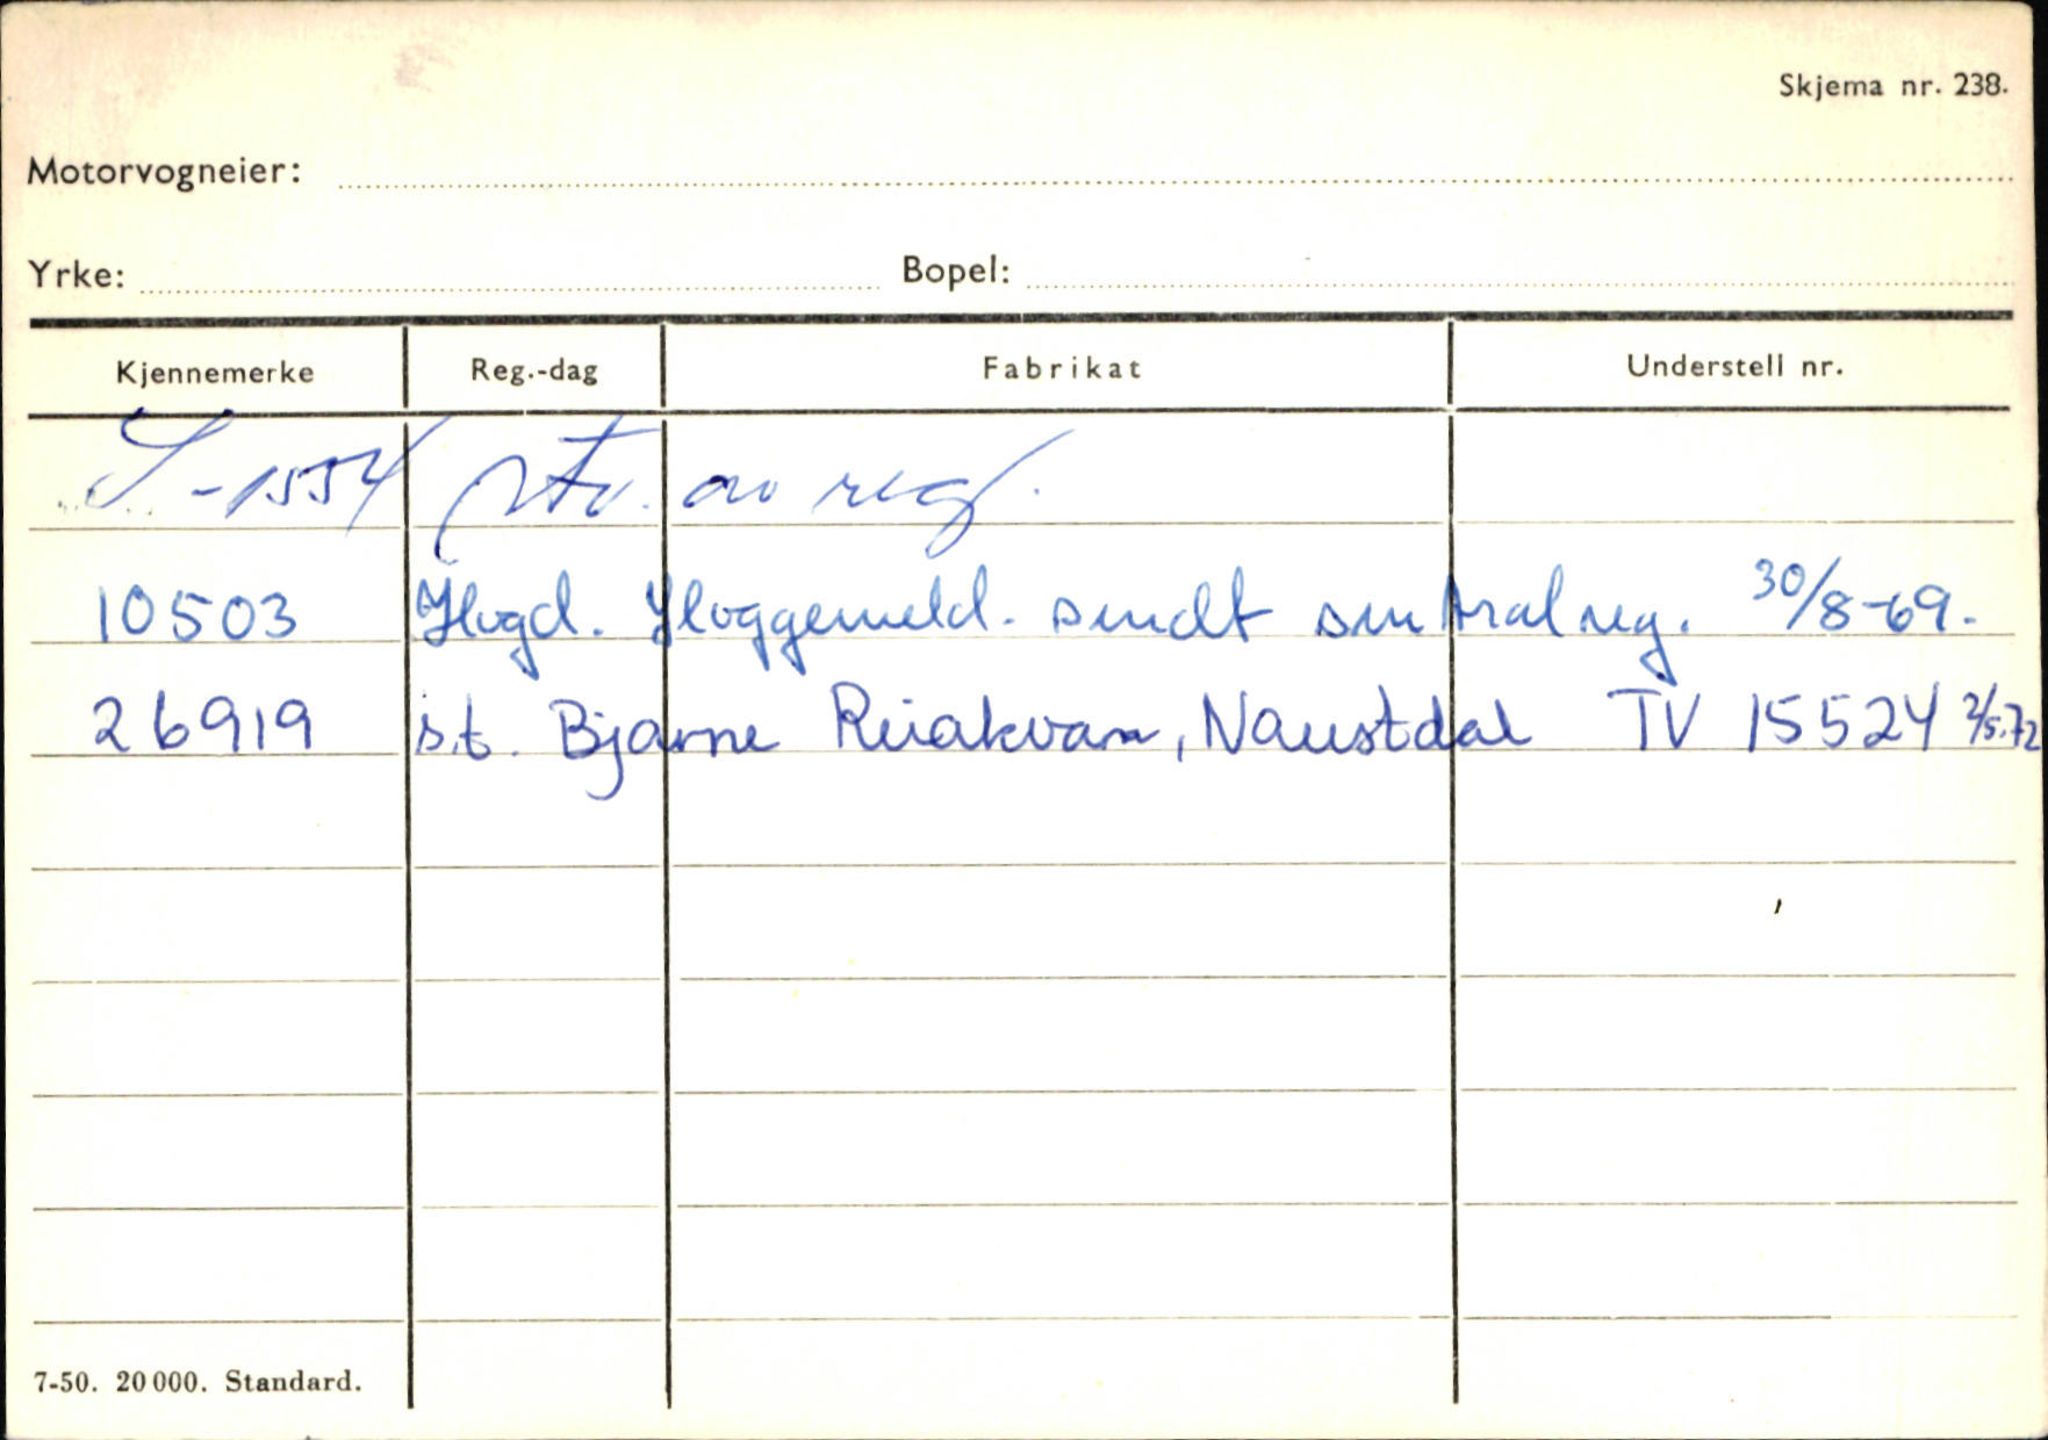 Skjema nr. 238.
Motorvogneier:
Yrke: Bopel:
Kjennemerke Reg.-dag Fabrikat Understell nr.
S-1554 av reg.
10503 Hogd. sendt sentralreg. 30/8-69.
26919 s.t. Bjarne Reiakvam, Naustdal TV 15524 2/5.72
7-50. 20000. Standard.